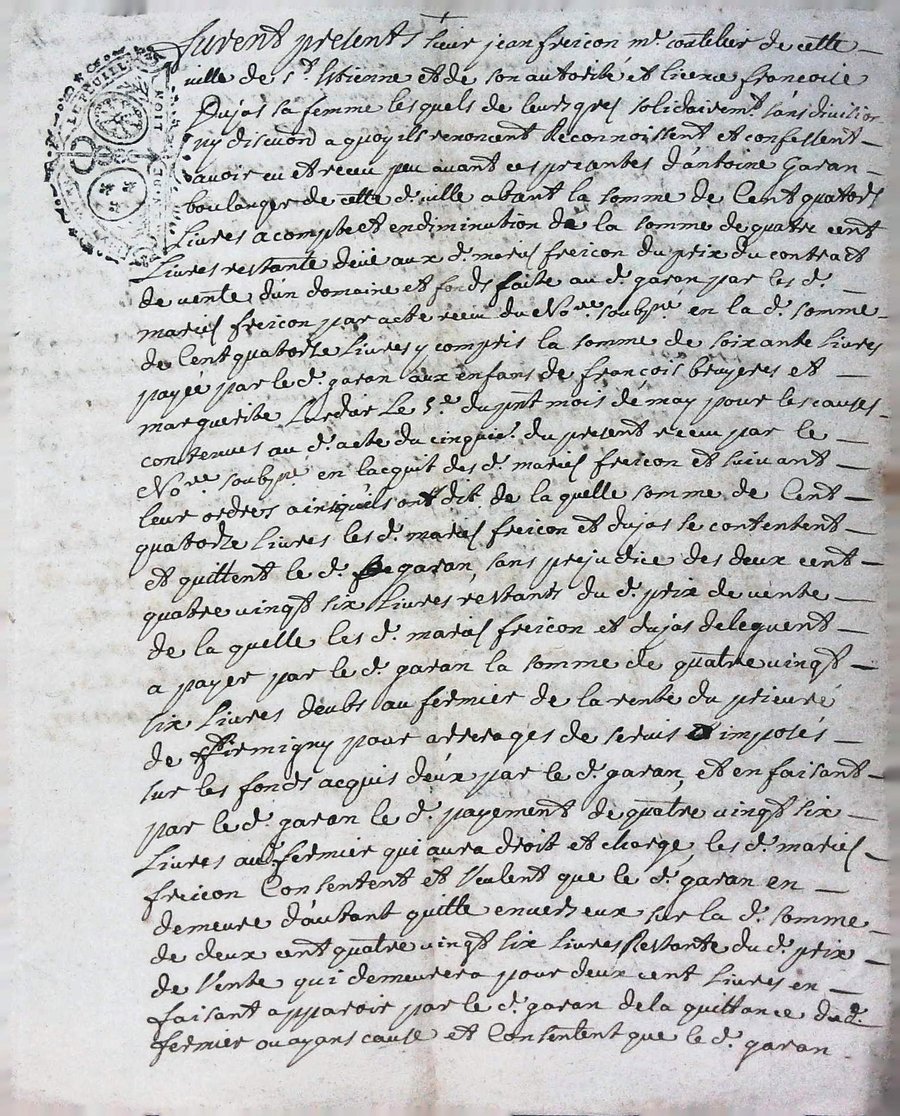 furent presents sieur jean freicon me coutelier de cette
ville de st Etienne et de son autorité et licence francoise
Dujas sa femme lesquels de leurs gres solidairemt sans division
ny discution a quoy ils renoncent Reconnoissent et confessent
avoir eu et receu peu avant ces presentes d'antoine Garan
boulanger de cette de ville absent la somme de Cent quatorze
Livres acompte et en diminution de la somme de quatre cent
Livres restante deüe aux ds mariés freicon du prix du contract
de vente d'un domaine et fonds faite au d. garan par les d.
mariés freicon par acte receu du Nore. soubsne en la d. somme
de Cent quatorze Livres y compris la somme de soixante Livres
payée par le d. garan aux enfans de francois bruyeres et
marguerite Lardar le 5e du pnt mois de may pour les causes
contenues au d. acte du cinquie. du present receu par le
Nore. soubsne en lacquit des d. mariés freicon et suivant
leur ordres ainsy qu'ils ont dit de la quelle somme de Cent
quatorze Livres les d. mariés freicon et dujas se contentent
et quittent le d. garan, sans prejudice des deux cent
quatre vingt six Livres restants du d. prix de vente
de la quelle les d. mariés freicon et dujas deleguent
a payer par le d. garan la somme de quatre vingt
six Livres deubs au fermier de la rente du prieuré
de firmigny pour arrerages de servis imposés
sur les fonds acquis d'eux par le d. garan, et en faisant
par le d. garan le d. payement de quatre vingt six
Livres aud. fermier qui aura droit et charge, les d. mariés
freicon Consentent et Veulent que le d. garan en
demeure d'autant quitte envers eux sur la d. somme
de deux cent quatre vingt six livres Restante du d. prix
de Vente qui demeurera pour deux cent Livres en
faisant apparoir par le d. garan de la quittance du d.
fermier ou ayans cause et Consentent que le d. garan